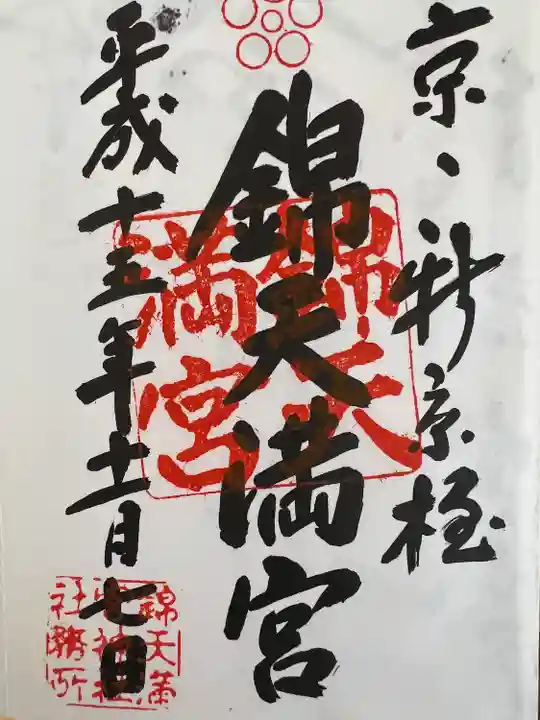 京、新京極
錦天満宮
錦天
満宮
平成十五年十一月七日
錦天満
社務所